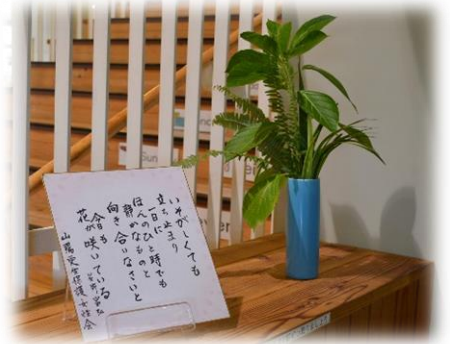 いそがしくても
立ち止まり
一日に
ほんのひと時でも
静かなものと
向き合いなさいと
今日も
花が咲いている
山陽更生保護女性会
Sun